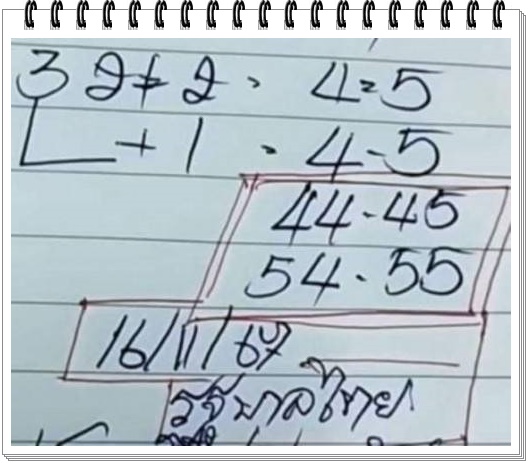 3 2+2 · 4=5
+1 · 4-5
44-45
54-55
16/11/67
รัฐบาลไทย